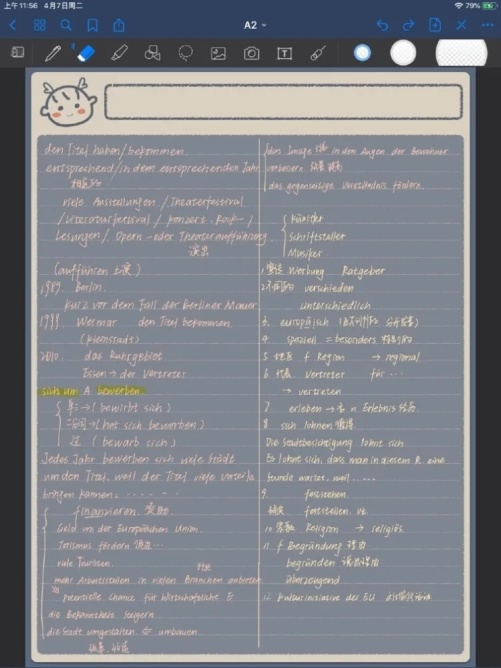 上午11:56 4月7日周二
79%
A2
den Titel haben/bekommen
entsprechend/in dem entsprechenden Jahr
相应的
viele Ausstellungen / Theaterfestival
/Literaturfestival / konzert. Rock- /
Lesungen/ Opern- oder Theateraufführung
演出
(aufführen 上演)
1989. Berlin.
kurz vor dem Fall der Berliner Mauer
1999. Weimar den Titel bekommen.
(kleinstadt)
2010. das Ruhrgebiet
Essen → der Vertreter
sich um A bewerben.
→ ( bewirbt sich )
→ ( hat sich beworben )
过 ( bewarb sich )
Jedes Jahr bewerben sich viele Städt
um den Titel, weil der Titel viele vorteile
bringen können. . . . . . .
finanzieren. 资助
Geld von der Europäischen Union.
Torismus fördern
viele Touristen.
行业
mehr Arbeitsstellen in vielen Branchen anbieten
potenzielle Chance für wirtschaftliche E
die Bekanntheit steigern
die Stadt umgestalten. umbauen
改造
das Image in den Augen der Bewohner
verbessern
das gegenseitige Verständnis fördern.
Künstler
Schriftsteller
Musiker
1. Werbung Ratgeber
2. 不同的 verschieden
unterschiedlich
3. europäisch
4. speziell = besonders 特别的
5. 地区 f Region → regional
6. 代表 vertreter für . . .
→ vertreten
7. erleben → n Erlebnis
8 sich lohnen 值得
Die Stadtbesichtigung lohnt sich
Es lohnt sich, dass man in diesem R. eine
Stunde wartet, weil . . . . .
9. feststehen.
确定 feststellen. vt.
10. 宗教 Religion → religiös.
11. f Begründung 理由
begründen
überzeugend
12. Kulturinitiative der EU